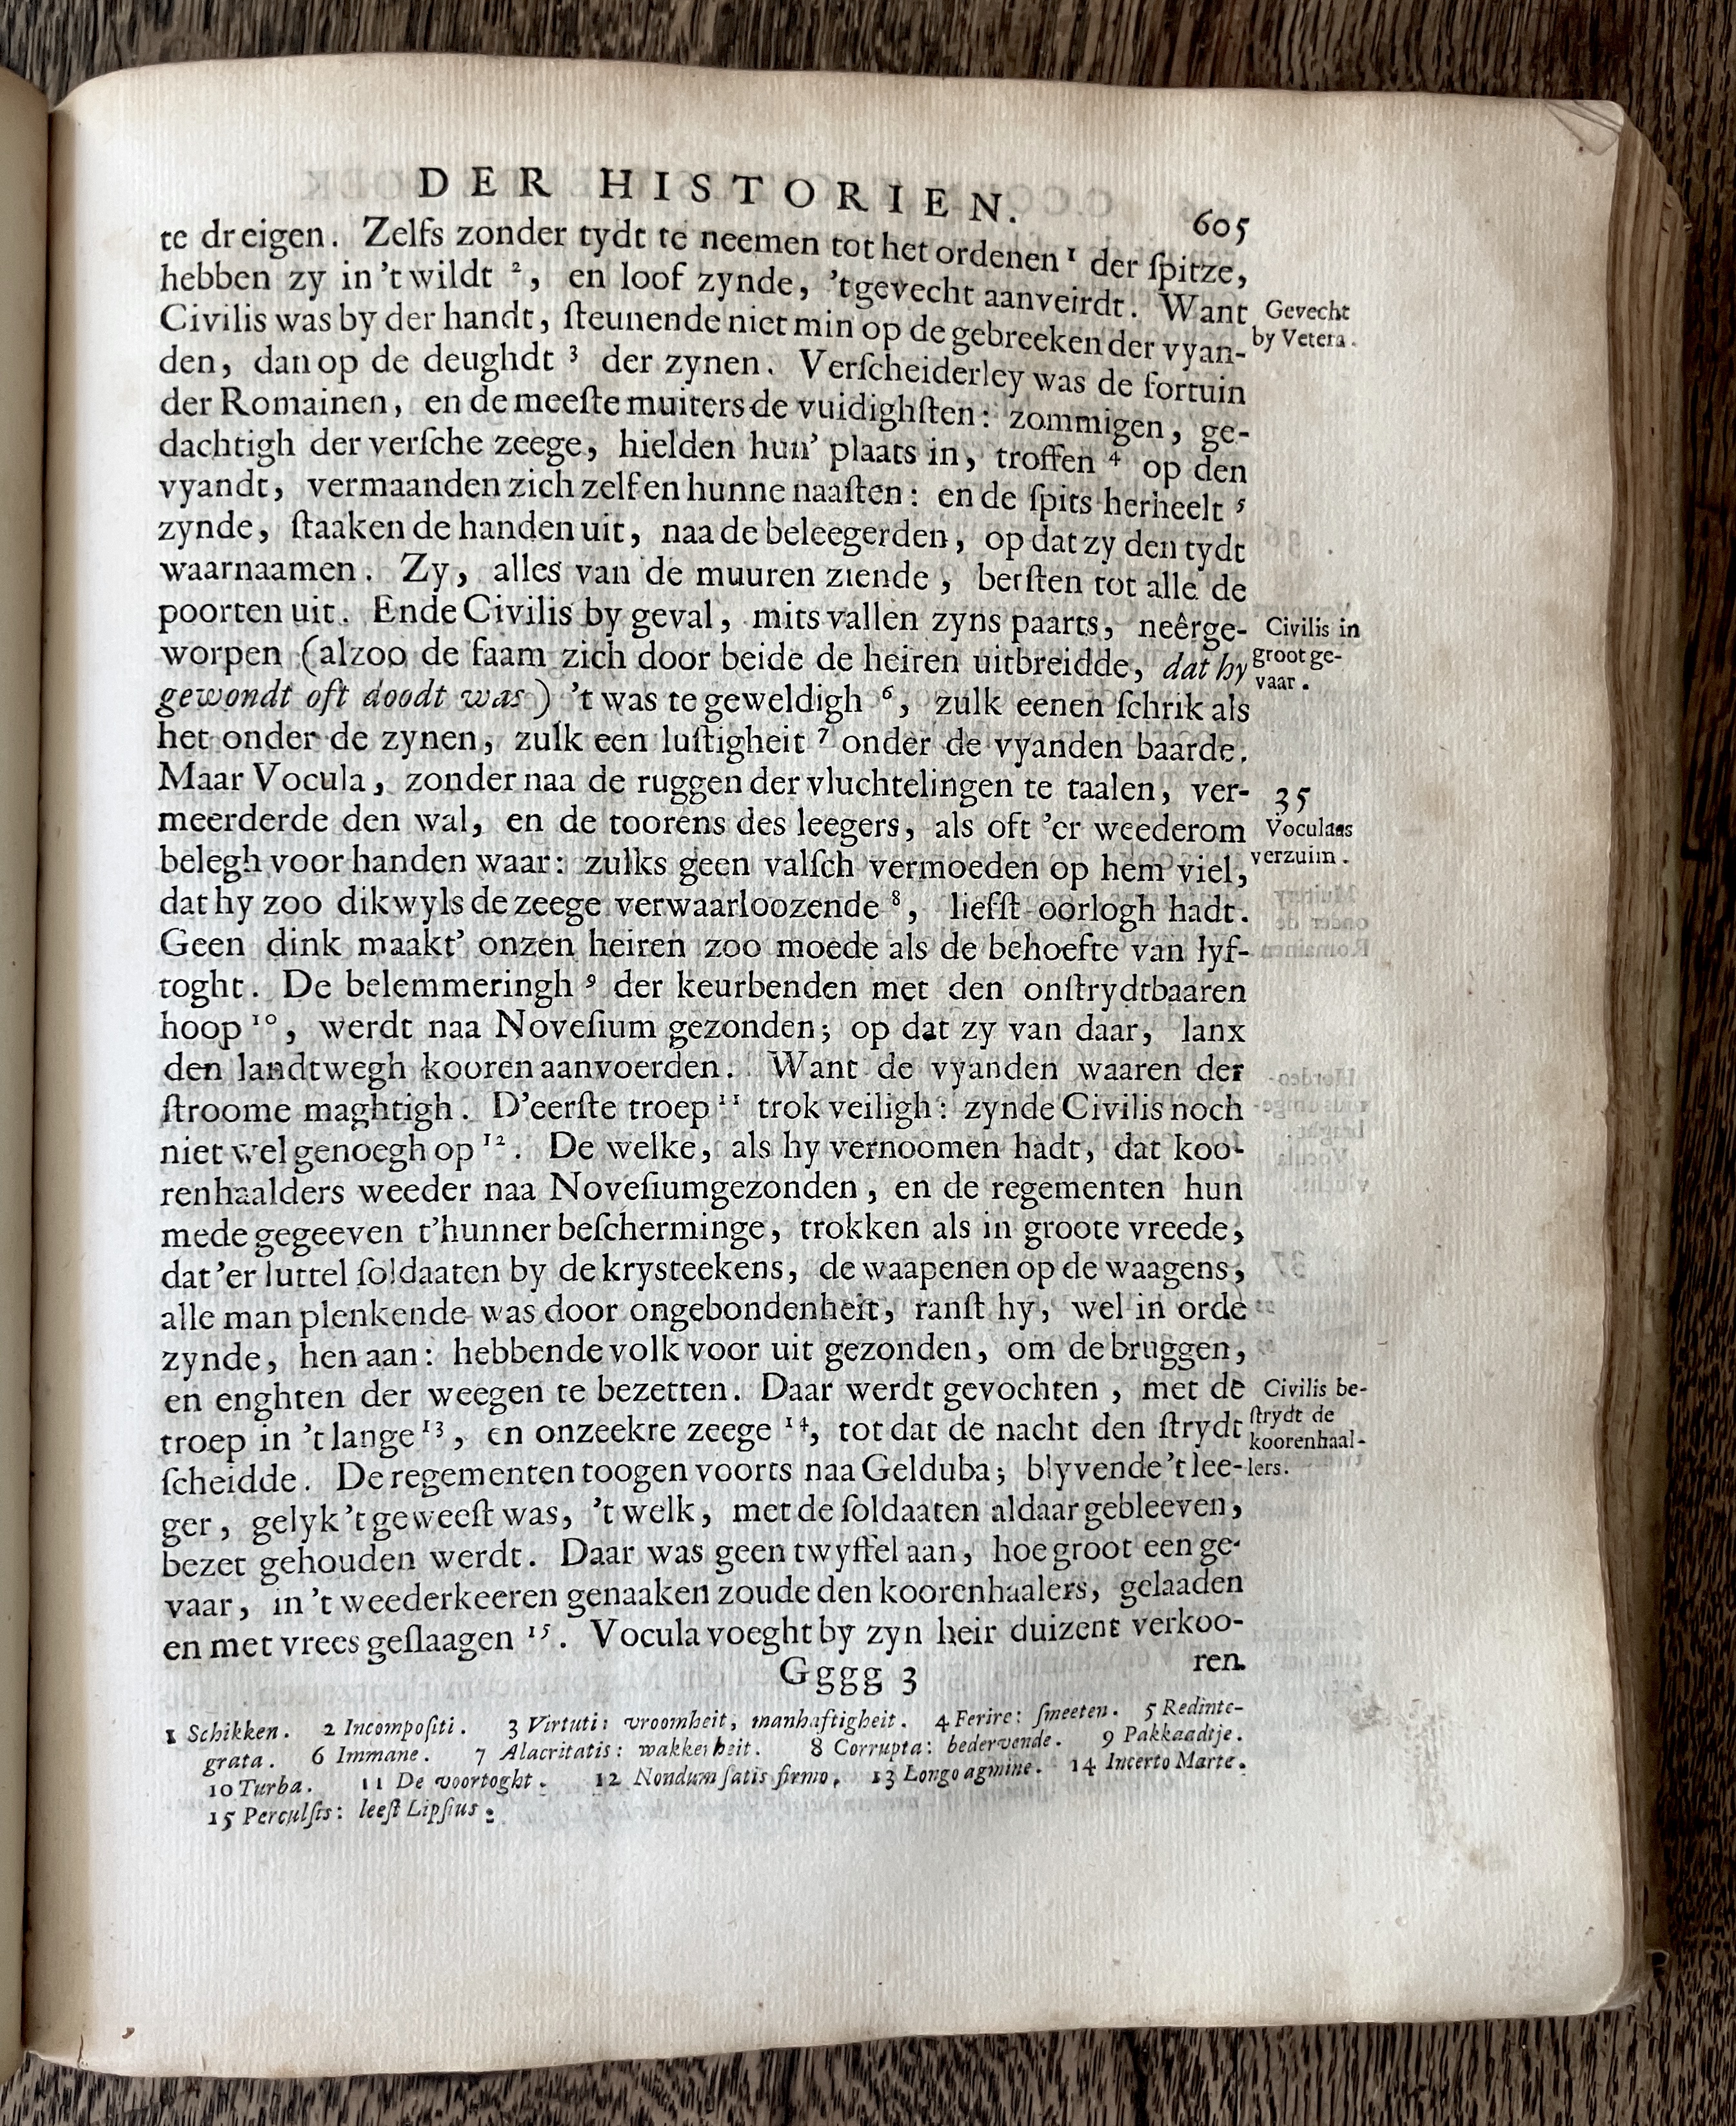 DER HISTORIEN. 605
te dreigen. Zelfs zonder tydt te neemen tot het ordenen ¹ der ſpitze,
hebben zy in 't wildt ², en loof zynde, 't gevecht aanveirdt. Want
Gevecht
by Vetera.
Civilis was by der handt, ſteunende niet min op de gebreeken der vyan-
den, dan op de deughdt ³ der zynen. Verſcheiderley was de fortuin
der Romainen, en de meeſte muiters de vuidighſten: zommigen, ge-
dachtigh der verſche zeege, hielden hun' plaats in, troffen ⁴ op den
vyandt, vermaanden zich zelf en hunne naaſten: en de ſpits herheelt ⁵
zynde, ſtaaken de handen uit, naa de beleegerden, op dat zy den tydt
waarnaamen. Zy, alles van de muuren ziende, berſten tot alle de
poorten uit. Ende Civilis by geval, mits vallen zyns paarts, neêrge-
Civilis in
groot ge-
vaar.
worpen (alzoo de faam zich door beide de heiren uitbreidde, dat hy
gewondt oft doodt was) 't was te geweldigh ⁶, zulk eenen ſchrik als
het onder de zynen, zulk een luſtigheit ⁷ onder de vyanden baarde.
Maar Vocula, zonder naa de ruggen der vluchtelingen te taalen, ver-
35
Voculaas
verzuim.
meerderde den wal, en de toorens des leegers, als oft 'er weederom
belegh voor handen waar: zulks geen valſch vermoeden op hem viel,
dat hy zoo dikwyls de zeege verwaarloozende ⁸, liefſt oorlogh hadt.
Geen dink maakt' onzen heiren zoo moede als de behoefte van lyf-
toght. De belemmeringh ⁹ der keurbenden met den onſtrydtbaaren
hoop ¹⁰, werdt naa Noveſium gezonden; op dat zy van daar, lanx
den landtwegh kooren aanvoerden. Want de vyanden waaren der
ſtroome maghtigh. D'eerſte troep ¹¹ trok veiligh: zynde Civilis noch
niet wel genoegh op ¹². De welke, als hy vernoomen hadt, dat koo-
renhaalders weeder naa Noveſiumgezonden, en de regementen hun
mede gegeeven t'hunner beſcherminge, trokken als in groote vreede,
dat 'er luttel ſoldaaten by de krysteekens, de waapenen op de waagens,
alle man plenkende was door ongebondenheit, ranſt hy, wel in orde
zynde, hen aan: hebbende volk voor uit gezonden, om de bruggen,
en enghten der weegen te bezetten. Daar werdt gevochten, met de
Civilis be-
ſtrydt de
koorenhaal-
lers.
troep in 't lange ¹³, en onzeekre zeege ¹⁴, tot dat de nacht den ſtrydt
ſcheidde. De regementen toogen voorts naa Gelduba; blyvende 't lee-
ger, gelyk 't geweeſt was, 't welk, met de ſoldaaten aldaar gebleeven,
bezet gehouden werdt. Daar was geen twyffel aan, hoe groot een ge-
vaar, in 't weederkeeren genaaken zoude den koorenhaalers, gelaaden
en met vrees geſlaagen ¹⁵. Vocula voeght by zyn heir duizent verkoo-
Gggg 3 ren.
1 Schikken. 2 Incompoſiti. 3 Virtuti: vroomheit, manhaftigheit. 4 Ferire: ſmeeten. 5 Redinte-
grata. 6 Immane. 7 Alacritatis: wakkerheit. 8 Corrupta: bedervende. 9 Pakkaadtje.
10 Turba. 11 De voortoght. 12 Nondum ſatis firmo. 13 Longo agmine. 14 Incerto Marte.
15 Perculſis: leeſt Lipſius.